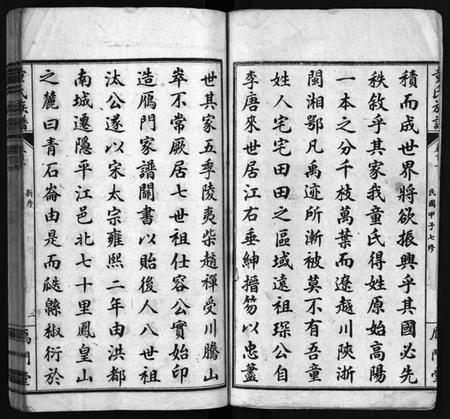 童氏族譜
卷首
民國甲子七修
雁門堂
積而成世界將欲振興乎其國必先
秩敘乎其家我童氏得姓原始高陽
一本之分千枝萬葉而遼越川陝浙
閩湘鄂凡禹迹所漸被莫不有吾童
姓人宅宅田田之區域遠祖琛公自
李唐來世居江右垂紳搢笏以忠藎
世其家五季陵夷柴趙禪受川騰山
崒不常厥居七世祖仕容公實始印
造雁門家譜闢書以貽後人八世祖
汰公遂以宋太宗雍熙二年由洪都
南城遷隱平江邑北七十里鳳皇山
之麓曰青石崙由是而瓞緜椒衍於
童氏族譜
卷首
新序
二
雁門堂